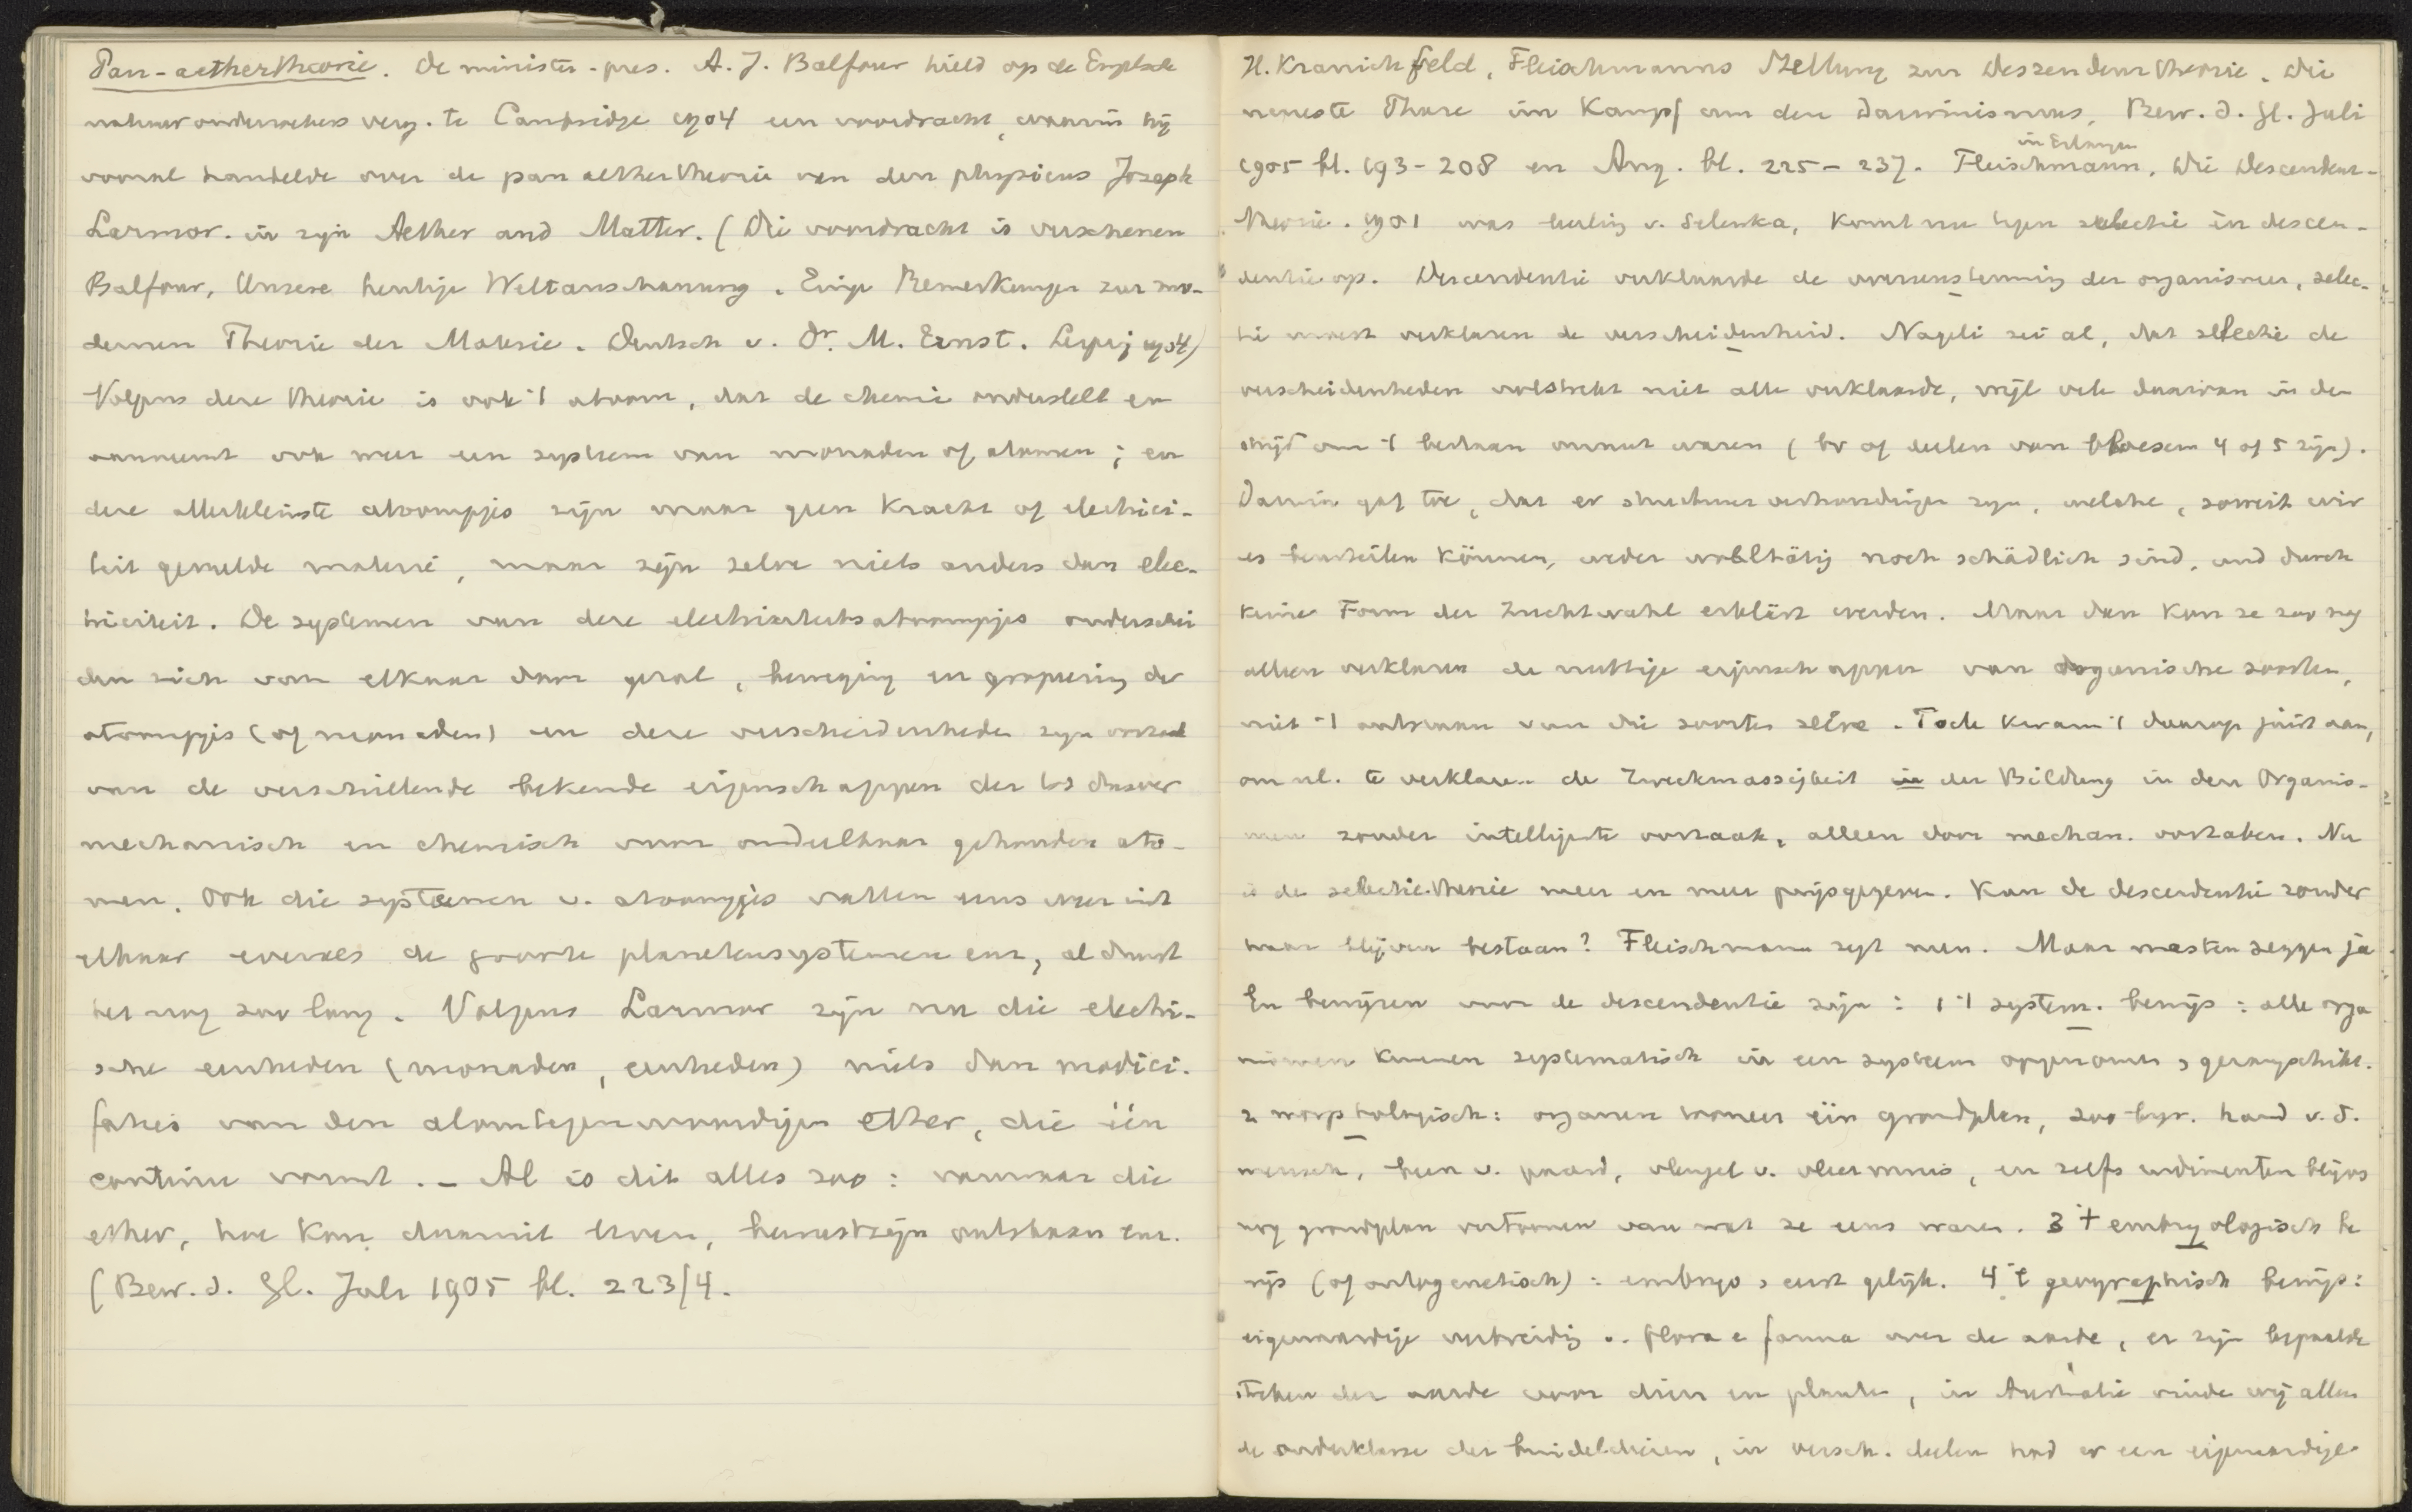 Pan-aethertheorie. De minister-pres. A. J. Balfour hield op de Engelsche
natuuronderzoekers verg. te Cambridge 1904 een voordracht, waarin hij
vooral handelde over de pan aethertheorie van den physicus Joseph
Larmor. in zijn Aether and Matter. (Die voordracht is verschenen
Balfour, Unsere heutige Weltanschauung. Einige Bemerkungen zur mo-
dernen Theorie der Materie. Deutsch v. Dr. M. Ernst. Leipzig 1904)
Volgens deze theorie is ook 't atoom, dat de chemie onderstelt en
aanneemt ook weer een systeem van monaden of atomen; en
deze allerkleinste atoompjes zijn maar geen kracht of electrici-
teit gevulde materie, maar zijn zelve niets anders dan elec-
triciteit. De systemen van deze electriciteitsatoompjes onderschei
den zich van elkaar door getal, beweging en groepeering der
atoompjes (of monaden) en deze verscheidenheden zijn oorzaak
van de verschillende bekende eigenschappen der tot dusver
mechanisch en chemisch voor ondeelbaar gehouden ato-
men. Ook die systemen v. atoompjes vallen eens weer uit
elkaar evenals de groote planetensystemen enz, al duurt
het nog zoo lang. Volgens Larmor zijn nu die electri-
sche eenheden (monaden, eenheden) niets dan modifi-
faties van den alomtegenwoordigen ether, die één
continu vormt. - Al is dit alles zoo: vanwaar die
ether, hoe kan daaruit leven, bewustzijn ontstaan enz.
(Bew. d. Gl. Juli 1905 bl. 223/4.
H. Kranichfeld, Fleischmanns Stellung zur Deszendenztheorie. Die
neueste Phase im Kampf um den Darwinismus, Bew. d. Gl. Juli
1905 bl. 193-208 en Aug. bl. 225-237. Fleischmann, Die Descendenz-
in Erlangen
theorie. 1901 was leerling v. Selenka, komt nu tegen selectie en descen-
dentie op. Descendentie verklaarde de overeenstemming der organismen, selec-
tie moest verklaren de verscheidenheid. Nageli zei al, dat selectie de
verscheidenheden volstrekt niet alle verklaarde, wijl vele daarvan in den
strijd om 't bestaan onnut waren (bv of deelen van bloesem 4 of 5 zijn).
Darwin gaf toe, dat er structuurverhoudingen zijn, welche, soweit wir
es beurteilen können, weder wohlthätig noch schädlich sind, und durch
keine Form der Zuchtwahl erklärt werden. Maar dan kan ze zoo nog
alleen verklaren de nuttige eigenschappen van organische soorten,
niet 't ontstaan van die soorten zelve. Toch kwam 't daarop juist aan,
om nl. te verklaren de Zweckmässigkeit in der Bildung in den Organis-
men zonder intelligente oorzaak, alleen door mechan. oorzaken. Nu
is de selectie-theorie meer en meer prijsgegeven. Kan de descendentie zonder
haar blijven bestaan? Fleischmann zegt neen. Maar meesten zeggen ja
En bewijzen voor de descendentie zijn: 1 't system. bewijs: alle orga
nismen kunnen systematisch in een systeem opgenomen, gerangschikt.
2 morphologisch: organen toonen één grondplan, zoo bijv. hand v. d.
mensch, been v. paard, vleugel v. vleermuis, en zelfs rudimenten blijvens
nog grondplan vertoonen van wat ze eens waren. 3 't embryologisch be
wijs (of ontogenetisch): embryo's eerst gelijk. 4 't geographisch bewijs:
eigenaardige verbreiding v. flora e fauna over de aarde, er zijn bepaalde
streken der aarde voor dieren en planten, in Australië vinden wij alleen
de onderklasse der buideldieren, in versch. deelen had er een eigenaardige